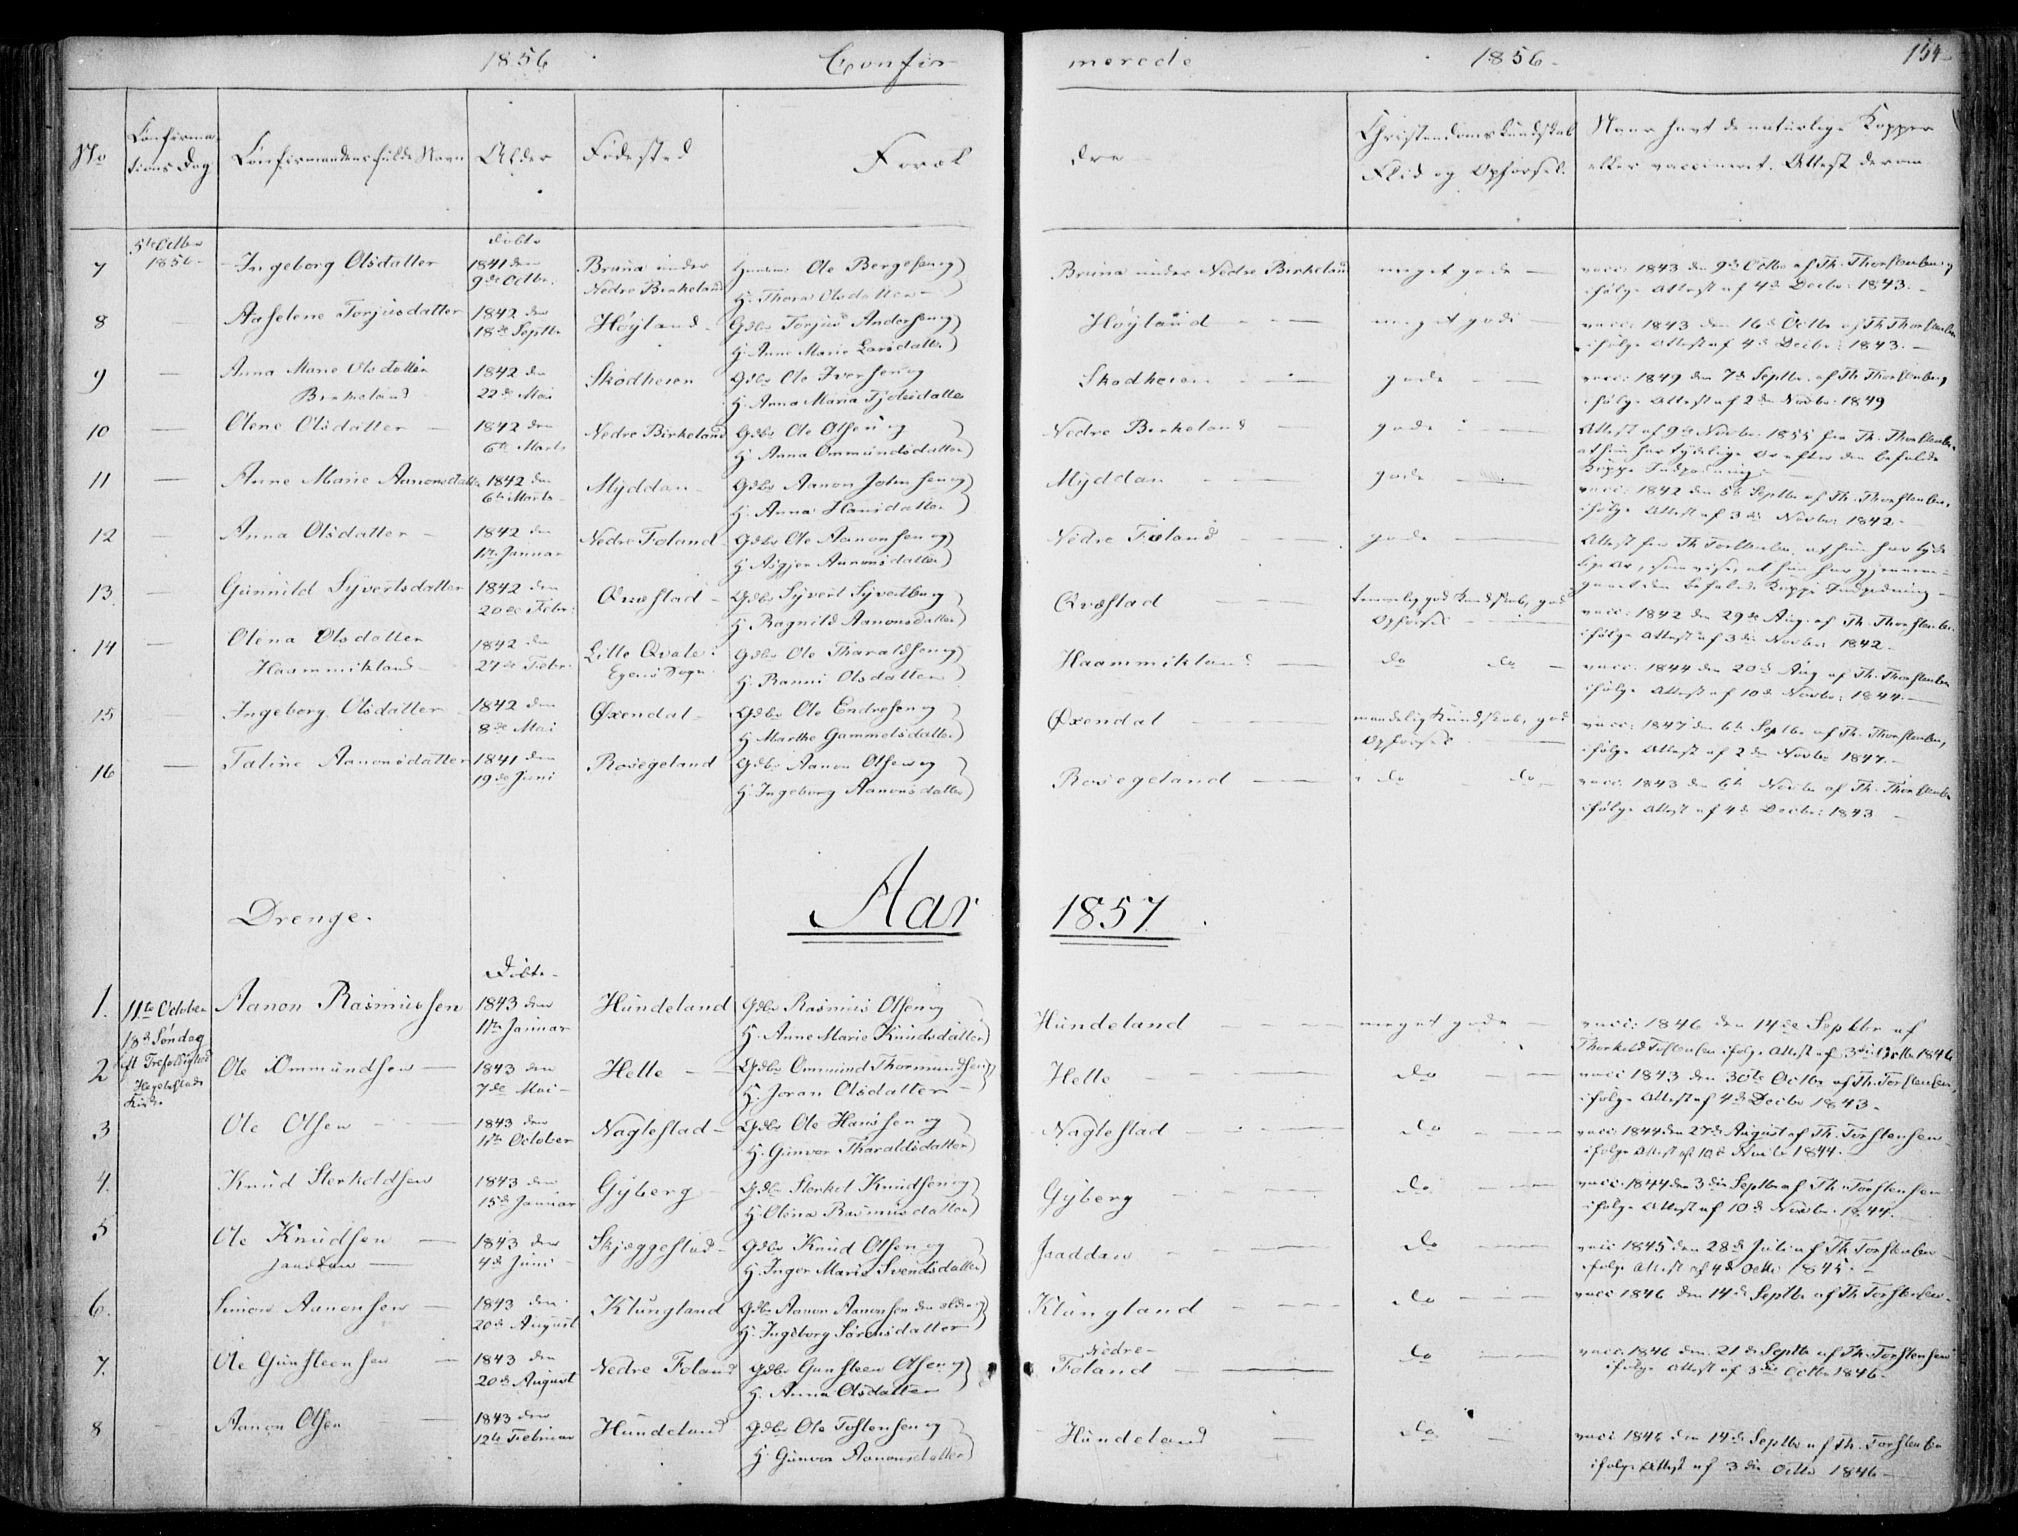 1856 Confir- merede 1856. 154
No Confirma- tions Dag Confirmandens fulde Navn Alder Fødested Foræl- dre Christendomskundskab Flid og Opførsel. Naar havt de naturlige Kopper eller vaccineret. Attest derom
5te Octbr 1856. døbte
7 Ingeborg Olsdatter 1841 den 9de Octbr. Bruna under Nedre Birkeland Ole Bergesen og H. Thora Olsdatter Bruna under Nedre Birkeland meget gode vacc: 1843 den 9de Octbr af Th. Thorstensen ifølge Attest af 4de Decbr: 1843.
8 Aaselene Torjusdatter 1842 den 18de Septbr Høyland Gdbr Torjus Andersen og H. Anne Marie Larsdatter Høyland meget gode vacc: 1843 den 16de Octbr af Th Thorstensen ifølge Attest af 4de Decbr: 1843.
9 Anna Marie Olsdatter Birkeland 1842 den 22de Mai Skodheien Gdbr Ole Iversen og H. Anna Maria Tjølsdatter Skodheien gode vacc: 1849 den 7de Septbr. af Th Thorstensen ifølge Attest af 2den Novbr. 1849
10 Olene Olsdatter 1842 den 6te Marts Nedre Birkeland Gdbr Ole Olsen og H. Anna Ommundsdatter Nedre Birkeland gode Attest af 9de Novbr. 1855 fra Th. Thorstensen at hun har tydelige Ar efter den befalede Koppe Indpodning
11 Anne Marie Aanonsdatter 1842 den 6te Marts Myddan Gdbr Aanon Johnsen og H. Anna Hansdatter Myddan gode vacc: 1842 den 5te Septbr af Th. Thorstensen, ifølge Attest af 3die Novbr. 1842.
12 Anna Olsdatter 1842 den 1ste Januar Nedre Foland Gdbr Ole Aanonsen og H Asgjer Aanonsdatter Nedre Foland gode Attest fra Th Torstensen, at hun har tyde lige Ar, som vise, at hun har gjennem- gaaet den befalede Koppe Indpodning
13 Gunnild Syvertsdatter 1842 den 20de Febr: Qvæstad Gdbr Syvert Syvertsen og H. Ragnild Aanonsdatter Qvæstad temmelig god Kundskab, god Opførsel vacc: 1842 den 29de Aug. af Th. Thorstensen ifølge Attest af 3die Novbr 1842.
14 Olena Olsdatter Haammikland 1842 den 27de Febr: Lille Qvale: Egers Sogn Gdbr Ole Tharaldsen og H. Ranni Olsdatter Haammikland do do vacc: 1844 den 20de Aug af Th. Thorstensen ifølge Attest af 10de Novbr: 1844.
15 Ingeborg Olsdatter 1842 den 8de Mai Øxendal Gdbr Ole Endresen og H Marthe Gammelsdatter Øxendal maadelig Kundskab, god Opførsel vacc: 1847 den 6te Septbr af Th. Thorstensen, ifølge Attest af 2den Novbr 1847.
16 Taline Aanonsdatter 1841 den 19de Juni Rosegeland Gdbr Aanon Olsen og H. Ingeborg Aanonsdatter Rosegeland do do vacc: 1843 den 6te Novbr af Th. Thorstensen ifølge Attest af 4de Decbr: 1843
Drenge. Aar 1857
Døbte.
1. 11te October Aanon Rasmussen 1843 den 11te Januar Hundeland Gdbr Rasmus Olsen og H. Anne Marie Knudsdatter Hundeland meget gode vacc: 1846 den 14de Septbr af Thorkeld Tostensen ifølge Attest af 3die Octbr 1846
18de Søndag eft Trefoldighed Hegebostads Kirke
2 Ole Ommundsen 1843 den 7de Mai Helle Gdbr Ommund Thormundsen og H. Joran Olsdatter Helle do vacc 1843 den 30te Octbr af Th. Torstensen, ifølge Attest af 4de Decbr 1843.
3 Ole Olsen 1843 den 11te October Naglestad Gdbr Ole Hansen og H. Gunvor Tharaldsdatter Naglestad do vacc: 1844 den 27de August af Th. Torstensen ifølge Attest af 10de Novbr 1844.
4. Knud Sterkeldsen 1843 den 15de Januar Gyberg Gdbr Sterkel Knudsen og H. Olena Rasmusdatter Gyberg do vacc: 1844 den 3die Septbr af Th: Torstensen ifølge Attest af 10de Novbr. 1844.
5 Ole Knudsen Jaaddan 1843 den 4de Juni Skjeggestad Gdbr Knud Olsen og H. Inger Marie Svendsdatter Jaaddan do vacc 1845 den 28de Juli af Th Torstensen ifølge Attest af 4de Octbr 1845.
6. Simon Aanonsen 1843 den 20de August Klungland Gdbr Aanon Aanonsen den ældre og H. Ingeborg Sørensdatter Klungland do vacc 1846 den 14de Septbr af Th. Torstensen.
7. Ole Gunsteensen 1843 den 20de August Nedre Foland Gdbr Gunsteen Olsen og H. Anna Olsdatter Nedre Foland do vacc: 1846 den 21de Septbr af Th. Torstensen ifølge Attest af 3die Octbr 1846.
8 Aanon Olsen 1843 den 12te Februar Hundeland Gdbr Ole Tostensen og H Gunvor Aanonsdatter Hundeland do vacc 1846 den 14de Septbr af Th. Torstensen ifølge Attest af 3die Octbr 1846